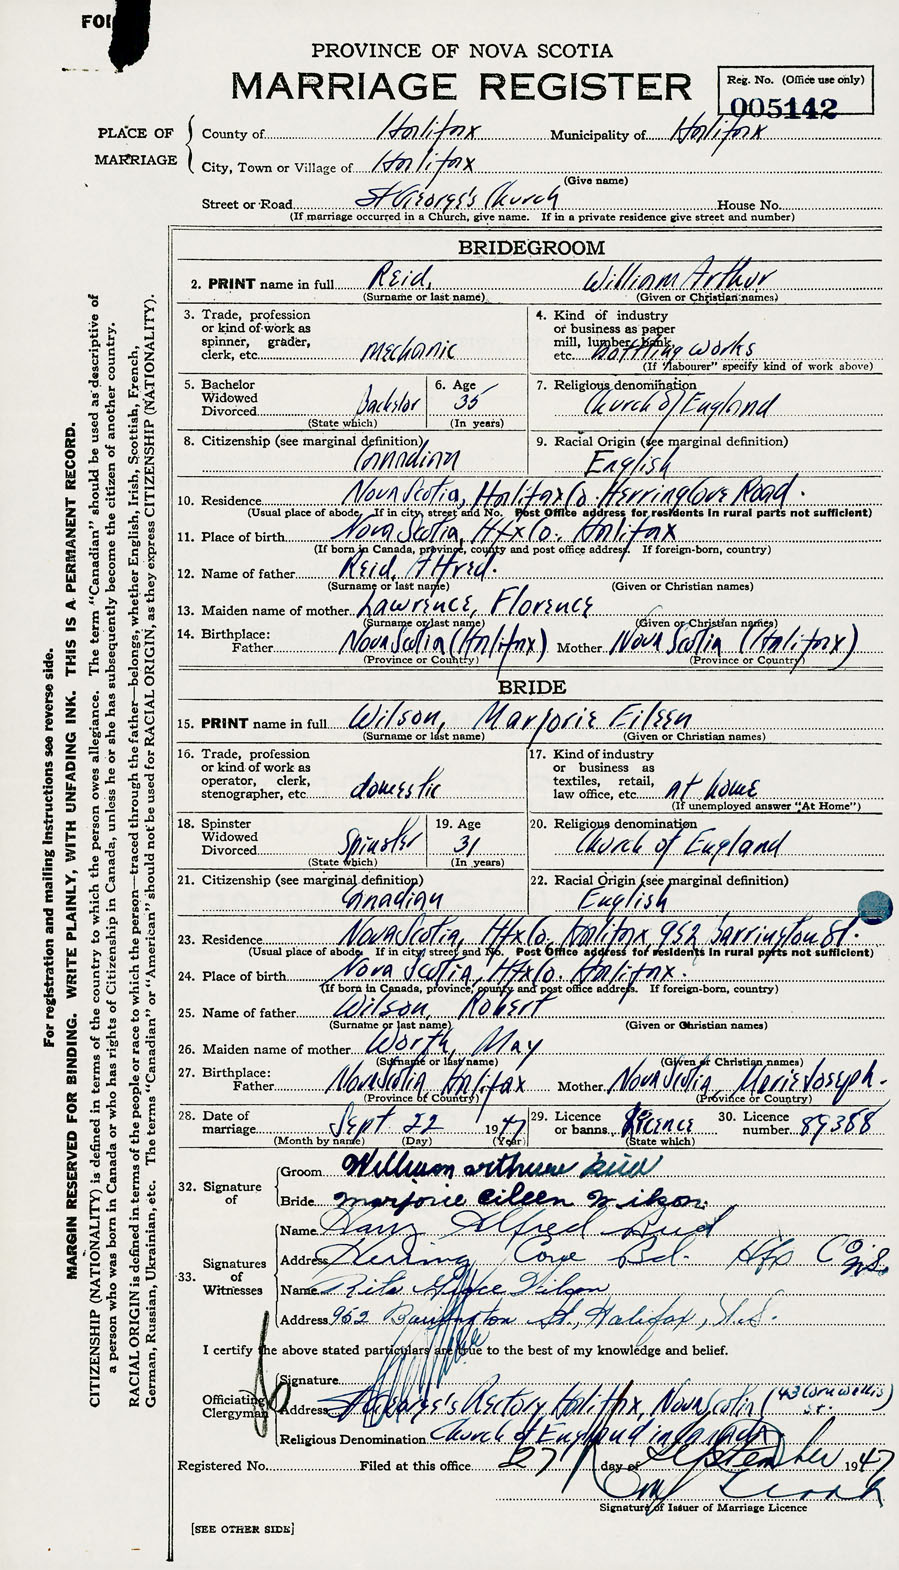 FOR
PROVINCE OF NOVA SCOTIA
MARRIAGE REGISTER
Reg. No. (Office use only)
005142
PLACE OF MARRIAGE
County of Halifax Municipality of Halifax
City, Town or Village of Halifax
(Give name)
Street or Road St George's Church House No.
(If marriage occurred in a Church, give name. If in a private residence give street and number)
BRIDEGROOM
2. PRINT name in full Reid, William Arthur
(Surname or last name) (Given or Christian names)
3. Trade, profession or kind of work as spinner, grader, clerk, etc. mechanic
4. Kind of industry or business as paper mill, lumber, bank, etc. Bottling works
(If "labourer" specify kind of work above)
5. Bachelor Widowed Divorced Bachelor
(State which)
6. Age 35
(In years)
7. Religious denomination Church of England
8. Citizenship (see marginal definition) Canadian
9. Racial Origin (see marginal definition) English
10. Residence Nova Scotia, Halifax Co. Herring Cove Road.
(Usual place of abode. If in city, street and No. Post Office address for residents in rural parts not sufficient)
11. Place of birth Nova Scotia, Hfx Co. Halifax
(If born in Canada, province, county and post office address. If foreign-born, country)
12. Name of father Reid, Alfred.
(Surname or last name) (Given or Christian names)
13. Maiden name of mother Lawrence, Florence
(Surname or last name) (Given or Christian names)
14. Birthplace: Father Nova Scotia (Halifax) Mother Nova Scotia (Halifax)
(Province or Country) (Province or Country)
BRIDE
15. PRINT name in full Wilson, Marjorie Eileen
(Surname or last name) (Given or Christian names)
16. Trade, profession or kind of work as operator, clerk, stenographer, etc. domestic
17. Kind of industry or business as textiles, retail, law office, etc. at home
(If unemployed answer "At Home")
18. Spinster Widowed Divorced Spinster
(State which)
19. Age 31
(In years)
20. Religious denomination Church of England
21. Citizenship (see marginal definition) Canadian
22. Racial Origin (see marginal definition) English
23. Residence Nova Scotia, Hfx Co. Halifax 952 Barrington St.
(Usual place of abode. If in city, street and No. Post Office address for residents in rural parts not sufficient)
24. Place of birth Nova Scotia, Hfx Co. Halifax.
(If born in Canada, province, county and post office address. If foreign-born, country)
25. Name of father Wilson, Robert
(Surname or last name) (Given or Christian names)
26. Maiden name of mother Worth, May
(Surname or last name) (Given or Christian names)
27. Birthplace: Father Nova Scotia Halifax Mother Nova Scotia, Marie Joseph.
(Province or Country) (Province or Country)
28. Date of marriage Sept 22 1947
(Month by name) (Day) (Year)
29. Licence or banns Licence
(State which)
30. Licence number 89388
32. Signature of
Groom William arthur Reid
Bride marjorie eileen wilson.
33. Signatures of Witnesses
Name Alfred Reid
Address Herring Cove Rd. Hfx Co N.S.
Name Rita Grace Wilson
Address 952 Barrington St., Halifax, N.S.
I certify the above stated particulars are true to the best of my knowledge and belief.
Officiating Clergyman
Signature
Address St George's Rectory Halifax, Nova Scotia (43 Cornwallis St.)
Religious Denomination Church of England in Canada
Registered No. Filed at this office 27 day of September 1947
Signature of Issuer of Marriage Licence
[SEE OTHER SIDE]
For registration and mailing instructions see reverse side.
MARGIN RESERVED FOR BINDING. WRITE PLAINLY, WITH UNFADING INK. THIS IS A PERMANENT RECORD.
CITIZENSHIP (NATIONALITY) is defined in terms of the country to which the person owes allegiance. The term "Canadian" should be used as descriptive of
a person who was born in Canada or who has rights of Citizenship in Canada, unless he or she has subsequently become the citizen of another country.
RACIAL ORIGIN is defined in terms of the people or race to which the person—traced through the father—belongs, whether English, Irish, Scottish, French,
German, Russian, Ukrainian, etc. The terms "Canadian" or "American" should not be used for RACIAL ORIGIN, as they express CITIZENSHIP (NATIONALITY).